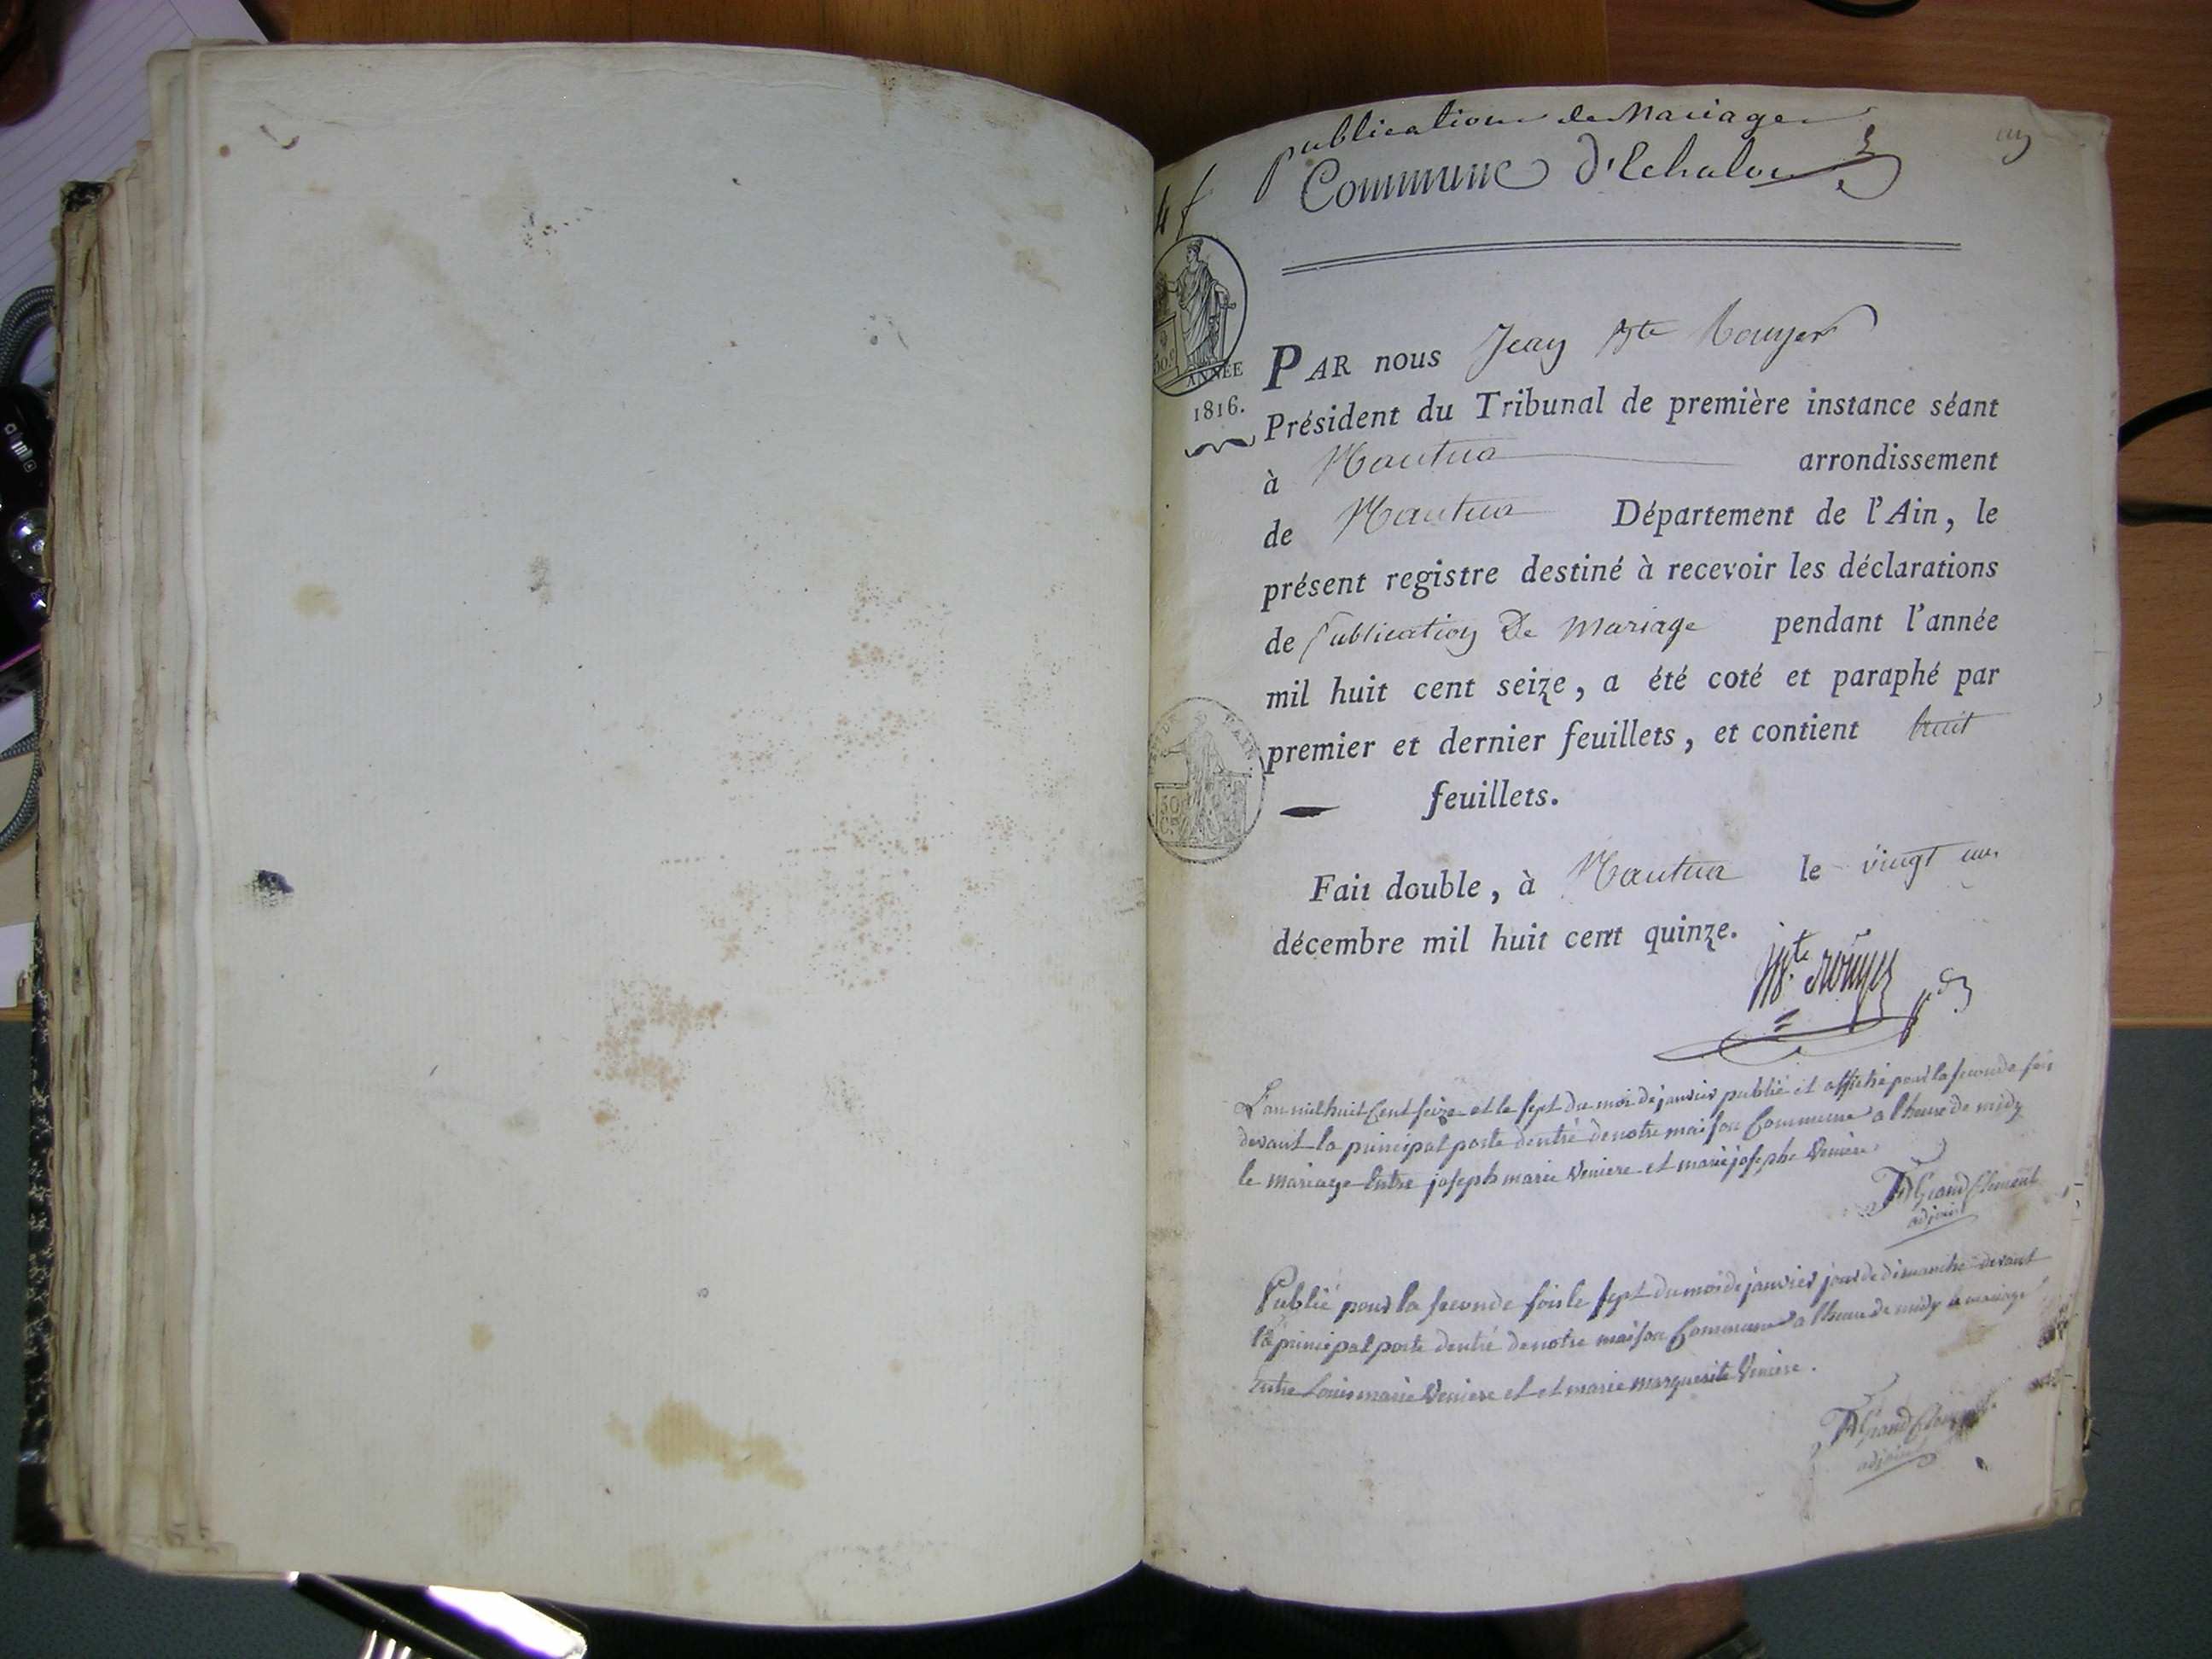 publications de Mariage
Commune d'Echalon
4 f
50 c
ANNÉE
1816.
PAR nous Jean Bte Rouyer
Président du Tribunal de première instance séant
à Nantua arrondissement
de Nantua Département de l'Ain, le
présent registre destiné à recevoir les déclarations
de Publication De Mariage pendant l'année
mil huit cent seize, a été coté et paraphé par
premier et dernier feuillets, et contient huit
feuillets.
DE L'AIN
50
Fait double, à Nantua le vingt un
décembre mil huit cent quinze.
JBte Rouyer
L'an mil huit Cent seize et le sept du moi de janvier publié et affiché pour la seconde fois
devant la principal porte dentré de notre maison Commune a lheure de midy
le mariage Entre joseph marie Veniere et marie josephe Veniere
Grand Clement
adjoint
Publié pour la seconde fois le sept du moi de janvier jour de dimanche devant
la principal porte dentré de notre maison Commune a lheure de midy le mariage
Entre Louis marie Veniere et et marie marguerite Veniere.
Grand Clement
adjoint